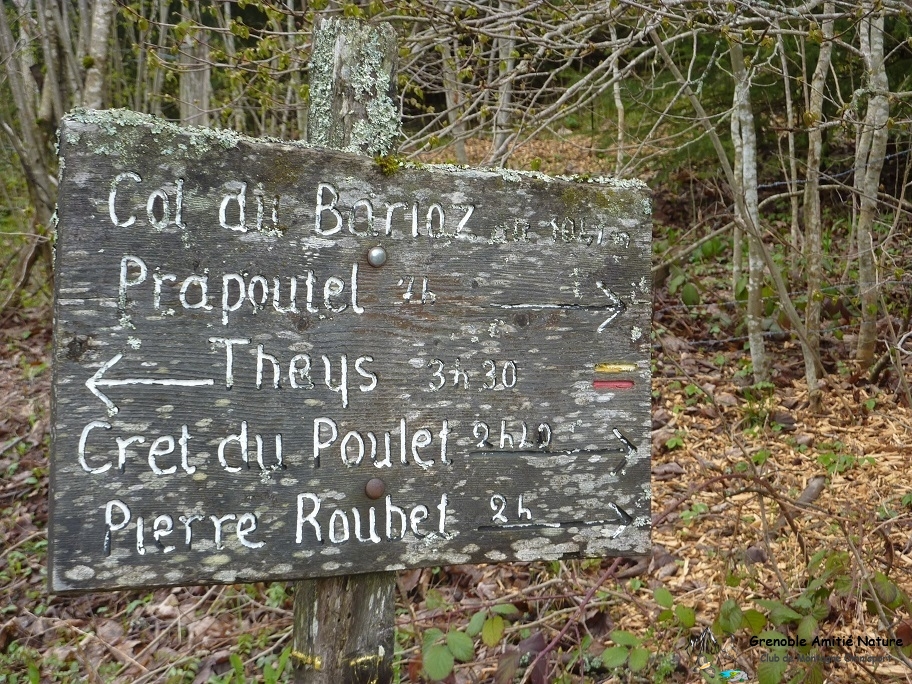 Col du Barioz alt 1041m
Prapoutel 4h →
← Theys 3h30
Cret du Poulet 2h20 →
Pierre Roubet 2h →
Grenoble Amitié Nature
Club de Montagne